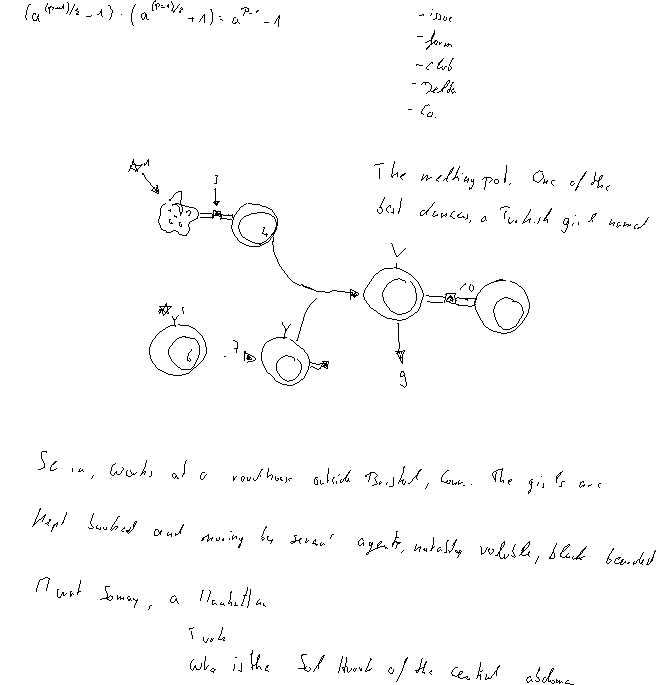 (a^(p-1)/2 - 1) · (a^(p-1)/2 + 1) = a^p-1 - 1
- issue
- form
- club
- Delta
- Co.
The melting pot. One of the
best dancers, a Turkish girl named
1
3
4
5
6
7
10
9
works at a roadhouse outside Bristol, Conn. The girls are
kept booked and moving by several agents, notably voluble, black bearded
Murat Somay, a Manhattan
Turk
who is the Sol Hurok of the central abdomen